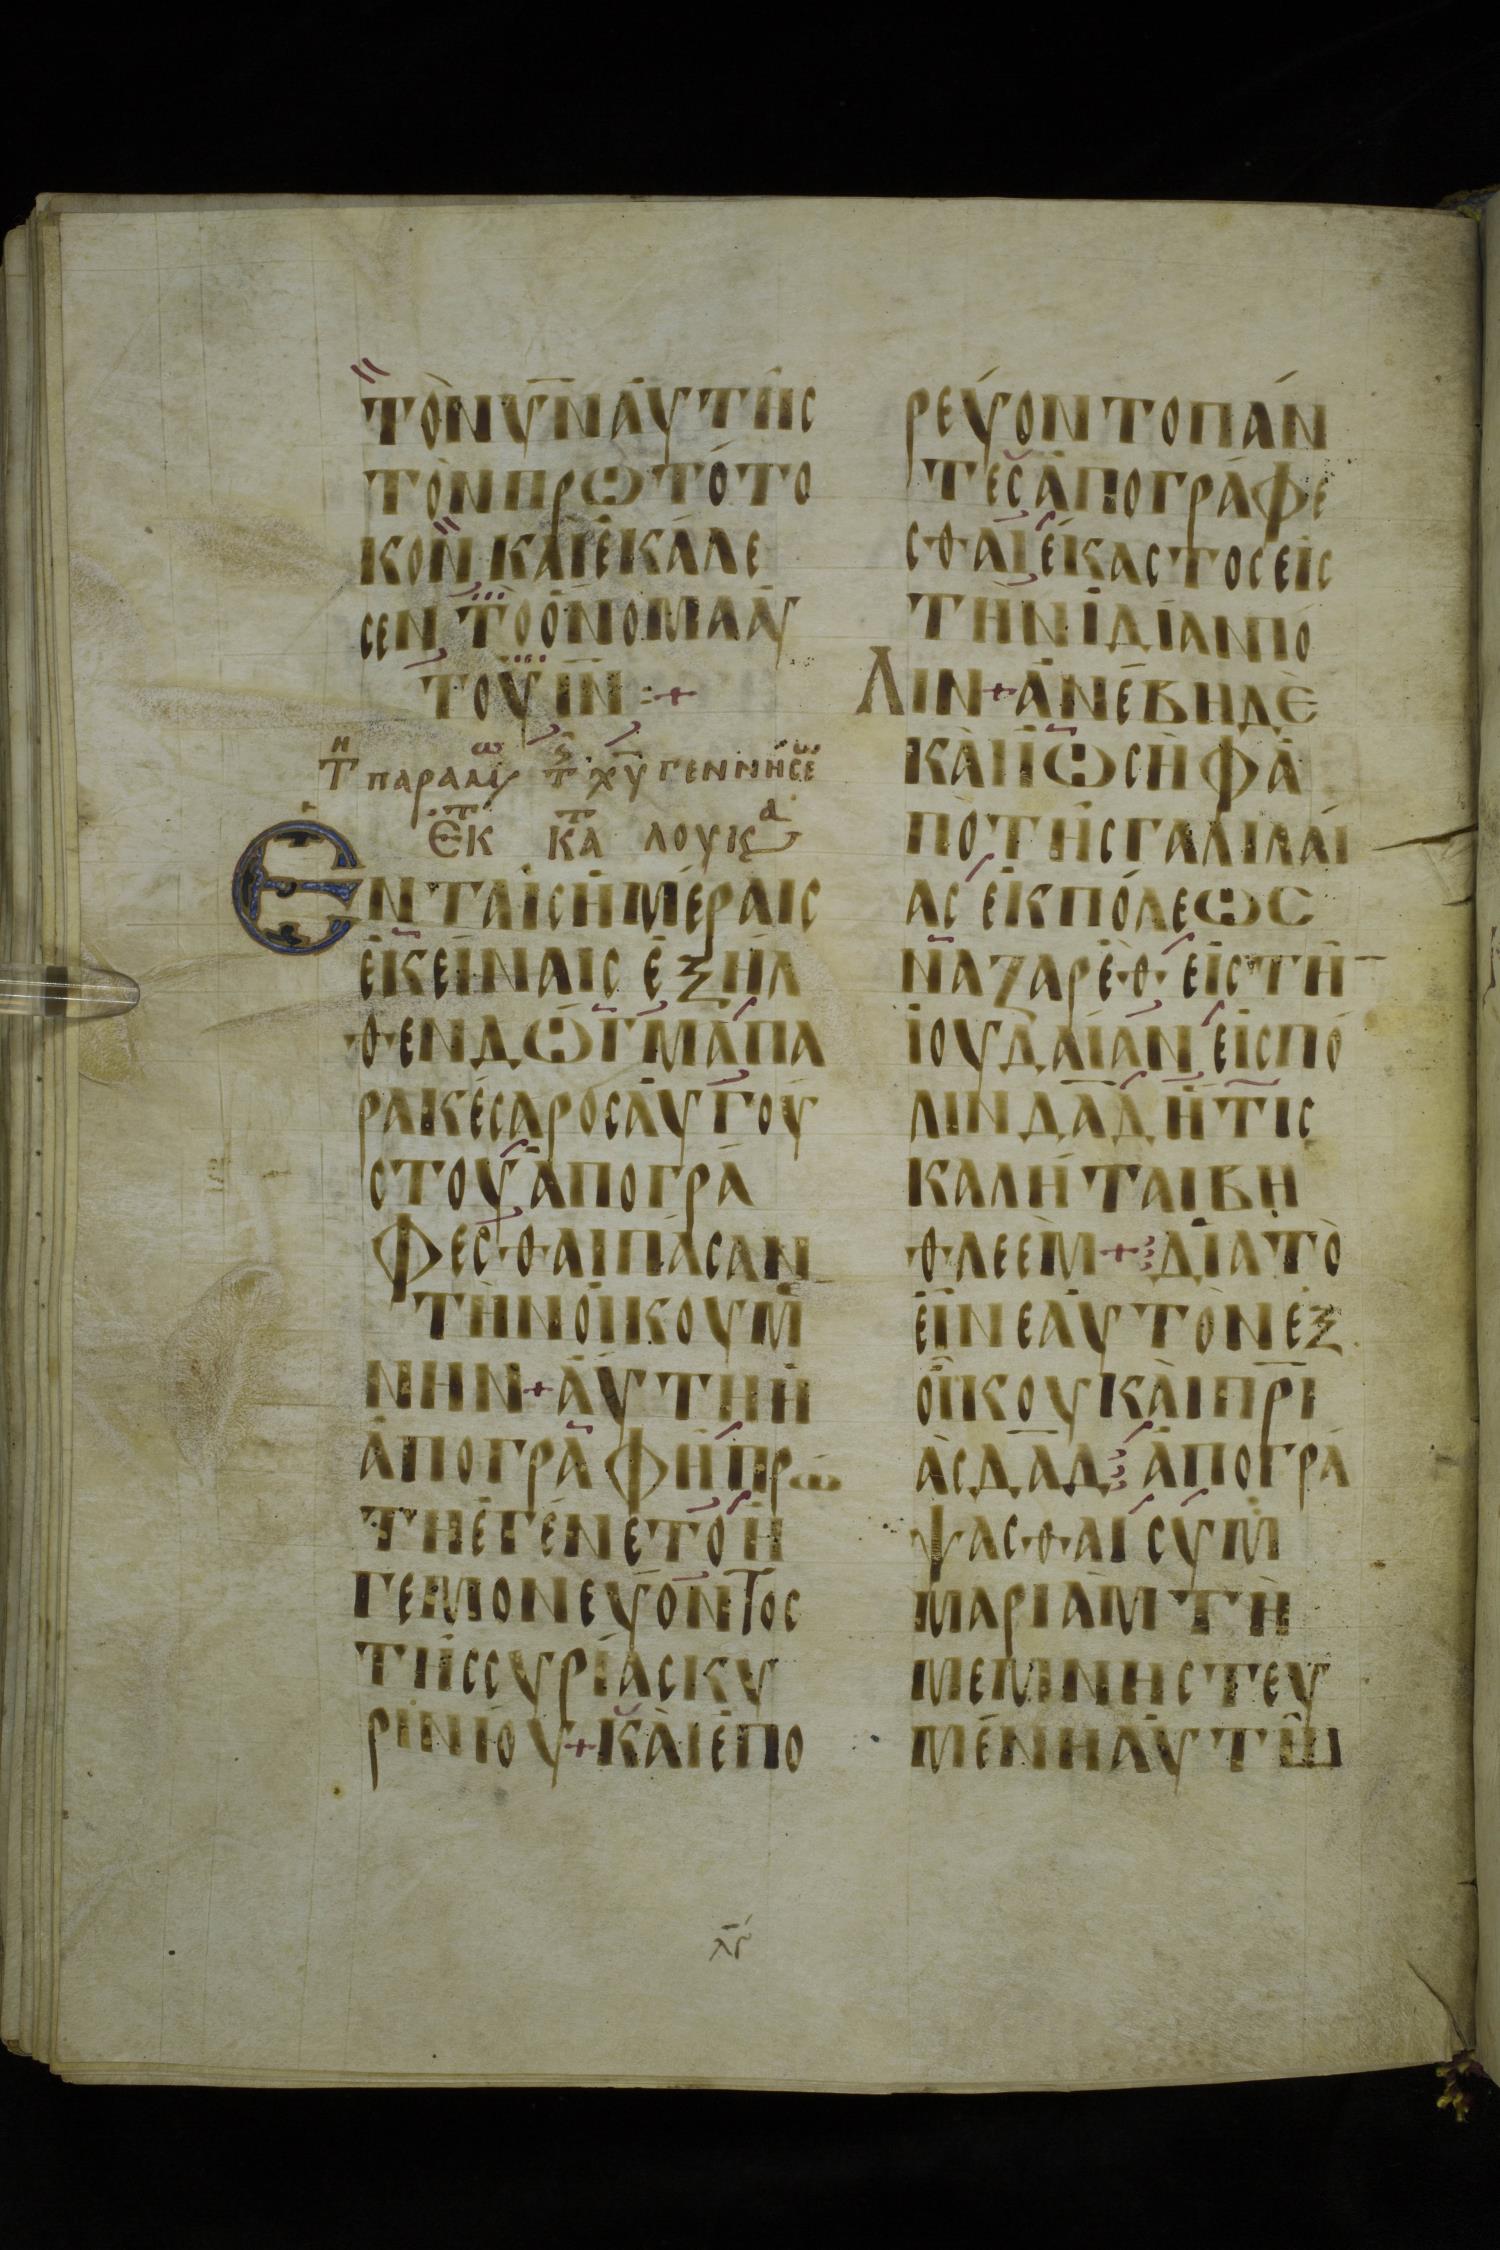 ΤῸΝ Ῡ̅Ν̅ ἈΥΤΗ͂Σ
ΤῸΝ ΠΡΩΤΌΤΟ
ΚΟΝ ΚΑῚ ἘΚΆΛΕ
ΣΕΝ ΤῸ ὌΝΟΜΑ ἈΥ
ΤΟΥ Ι̅Ν̅ :+
Τ̅Η παραμ Τ̅ χ̅υ̅ γεννήσε
Ἐκ κα λουκα
ἘΝ ΤΑῖΣ ἩΜΈΡΑΙΣ
ἘΚΕΊΝΑΙΣ ἘΞΗ͂Λ
ΘΕΝ ΔΩΓΜΑ ΠΑ
ΡΑ ΚΈΣΑΡΟΣ ἈΥΓΟΎ
ΣΤΟΥ ἈΠΟΓΡΆ
ΦΕΣΘΑΙ ΠΑ͂ΣΑΝ
ΤῊΝ ὈΙΚΟΥΜΈ
ΝΗΝ + ἈΎΤΗ Ἡ
ἈΠΟΓΡΑΦῊ ΠΡΏ
ΤΗ ἘΓΈΝΕΤΟ Ἡ
ΓΕΜΟΝΕΎΟΝΤΟΣ
ΤΗ͂Σ ΣΥΡΊΑΣ ΚΥ
ΡΙΝΊΟΥ + ΚΑῚ ἘΠΟ
ΡΕΎΟΝΤΟ ΠΆΝ
ΤΕΣ ἈΠΟΓΡΆΦΕ
ΣΘΑΙ ἝΚΑΣΤΟΣ ΕἸΣ
ΤῊΝ ἸΔΊΑΝ ΠΌ
ΛΙΝ + ἈΝΈΒΗ ΔῈ
ΚΑῚ ἸΩΣῊΦ Ἀ
ΠῸ ΤΗ͂Σ ΓΑΛΙΛΑΊ
ΑΣ ἘΚ ΠΌΛΕΩΣ
ΝΑΖΑΡῈΘ ΕἸΣ ΤΗ̅
ἸΟΥΔΑΊΑΝ ΕἸΣ ΠΌ
ΛΙΝ Δ̅Α̅Δ̅ ἭΤΙΣ
ΚΑΛΗ͂ΤΑΙ ΒΗ
ΘΛΕῈΜ + ΔΙΑ ΤῸ
ΕἾΝΕ ἈΥΤῸΝ ἘΞ
ὌΙΚΟΥ ΚΑῚ Π̅Ρ̅Ι
ἈΣ Δ̅Α̅Δ̅ ἈΠΟΓΡΆ
ΨΑΣΘΑΙ ΣΥΜ
ΜΑΡΙᾺΜ ΤῊ
ΜΕΜΝΗΣΤΕΥ
ΜΈΝΗ ἈΥΤΩ͂